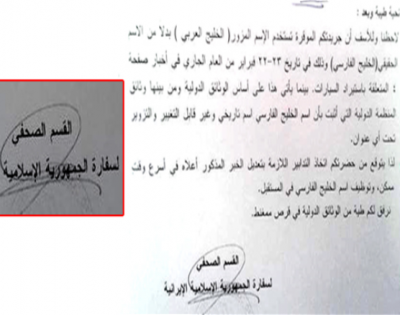 تحية طيبة وبعد :
لاحظنا وللأسف أن جريدتكم الموقرة تستخدم الإسم المزور( الخليج العربي ) بدلا من الاسم
الحقيقي(الخليج الفارسي) وذلك في تاريخ ٢٣-٢٢ فبراير من العام الجاري في أخبار صفحة
٤ المتعلقة باستيراد السيارات. بينما يأتي هذا على أساس الوثائق الدولية ومن بينها وثائق
المنظمة الدولية التي أثبت بأن اسم الخليج الفارسي اسم تاريخي وغير قابل التغيير والتزوير
تحت أي عنوان.
لذا يتوقع من حضرتكم اتخاذ التدابير اللازمة بتعديل الخبر المذكور أعلاه في أسرع وقت
ممكن، وتوظيف اسم الخليج الفارسي في المستقبل.
نرفق لكم طية من الوثائق الدولية في قرص ممغنط.
القسم الصحفي
لسفارة الجمهورية الإسلامية الإيرانية
القسم الصحفي
لسفارة الجمهورية الإسلامية